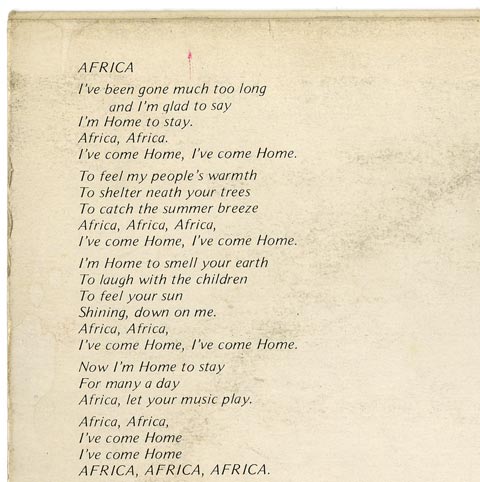 AFRICA
I've been gone much too long
and I'm glad to say
I'm Home to stay.
Africa, Africa.
I've come Home, I've come Home.
To feel my people's warmth
To shelter neath your trees
To catch the summer breeze
Africa, Africa, Africa,
I've come Home, I've come Home.
I'm Home to smell your earth
To laugh with the children
To feel your sun
Shining, down on me.
Africa, Africa,
I've come Home, I've come Home.
Now I'm Home to stay
For many a day
Africa, let your music play.
Africa, Africa,
I've come Home
I've come Home
AFRICA, AFRICA, AFRICA.